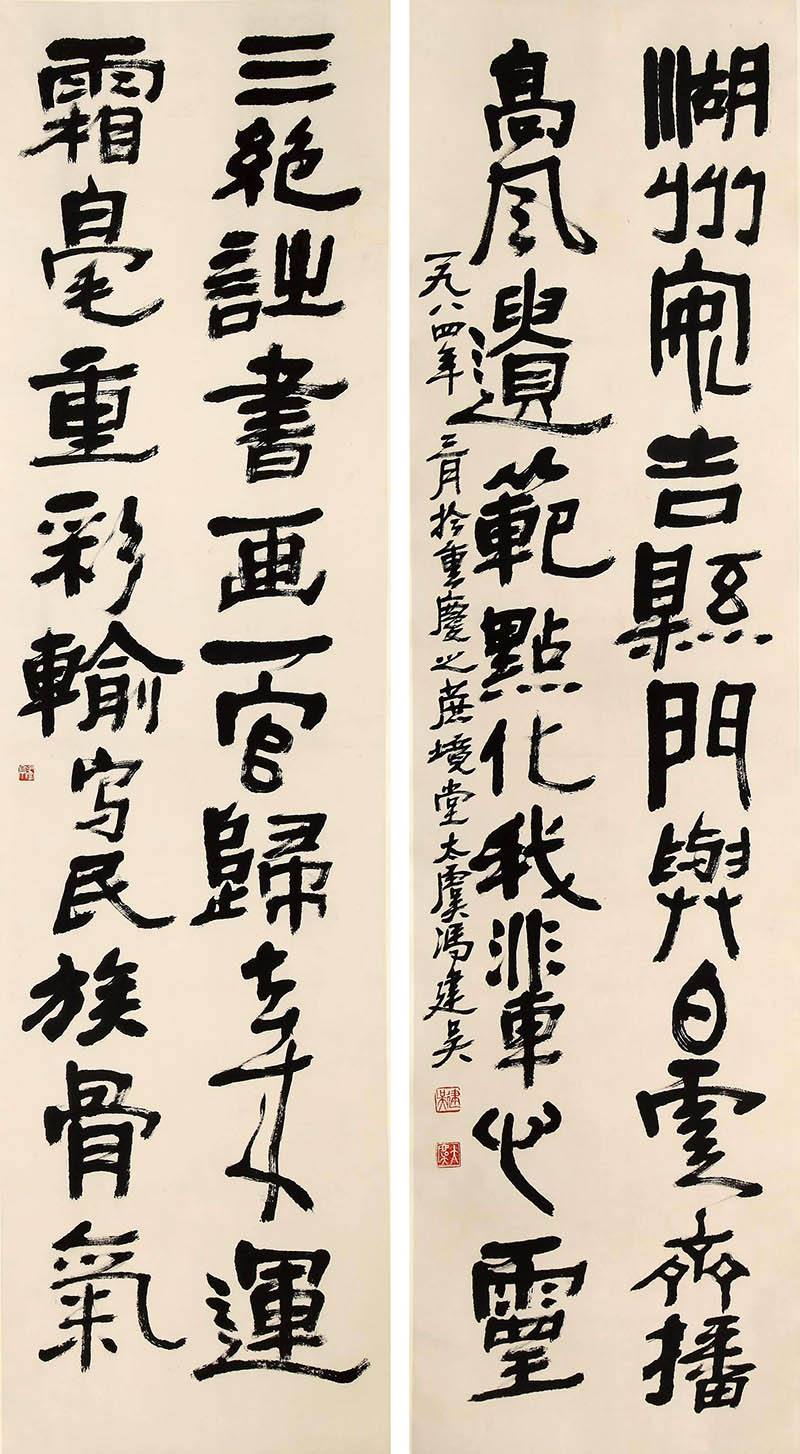 湖州安吉縣門與白雲齊播
高風遺範點化我輩心靈
一九八四年三月於重慶之蔗境堂太虞馮建吴
三絕詩書画一官歸去來運
霜毫重彩輸写民族骨氣